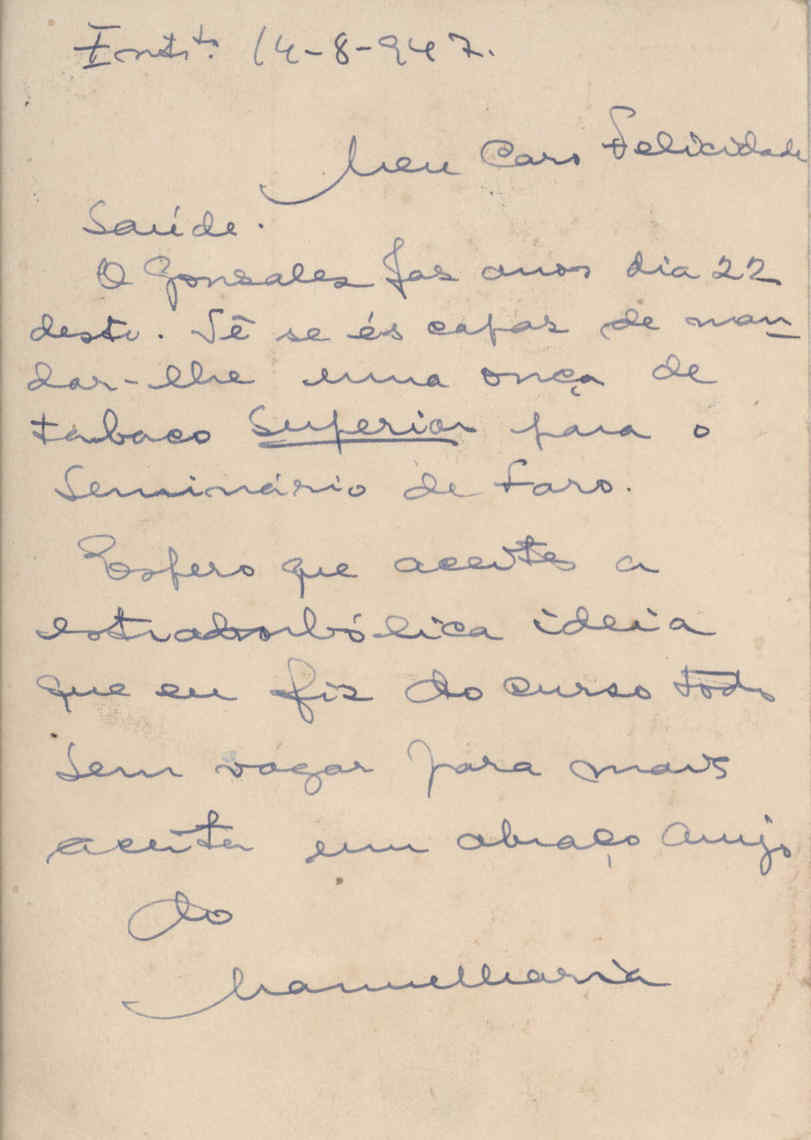 14-8-947.
Meu Caro Felicidade
Saúde.
O Gonsales fas anos dia 22
deste. Vê se és capas de man
dar-lhe uma onça de
tabaco Superior para o
Seminário de Faro.
Espero que aceites a
estrabombólica ideia
que eu fiz do curso todo
Sem vagar para mais
aceita um abraço amigo
do
Manuel Maria